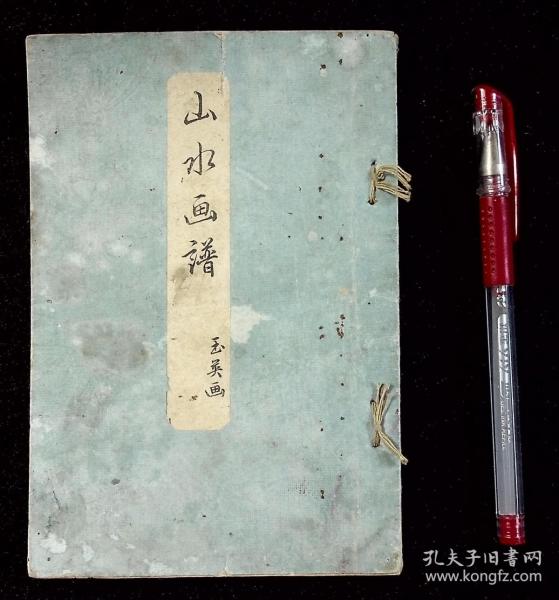 山水画譜
玉英画
孔夫子旧书网
www.kongfz.com